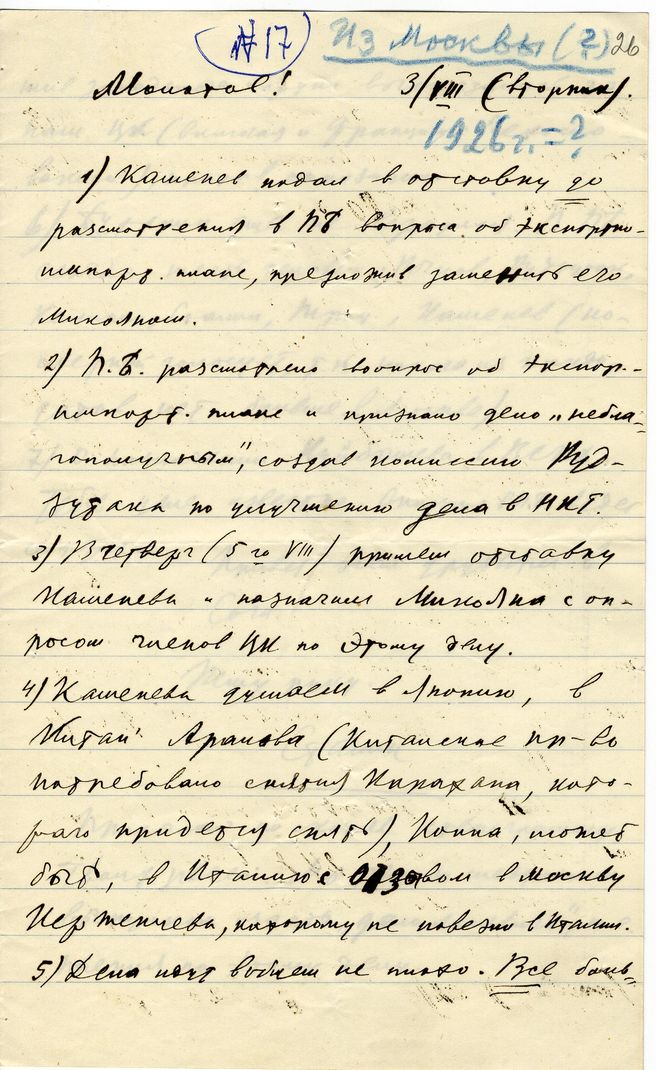 № 17 Из Москвы (?) 26
Молотов! 3/VIII (вторник).
1926 г. = ?
1) Каменев подал в отставку до
рассмотрения в ПБ вопроса об экспортно-
импорт. плане, предложив заменить его
Микояном.
2) П.Б. рассмотрело вопрос об экспор.-
импорт. плане и признало дело „небла-
гополучным", создав комиссию Руд-
зутака по улучшению дела в НКТ.
3) В четверг (5го VIII) примем отставку
Каменева и назначим Микояна с оп-
росом членов ЦК по этому делу.
4) Каменева думаем в Японию, в
Китай Аралова (Китайское пр-во
потребовало снятия Карахана, кото-
раго придется снять), Коппа, может
быть, в Италию с отзывом в Москву
Керженцева, которому не повезло в Италии.
5) Дела идут вобщем не плохо. Все боль-